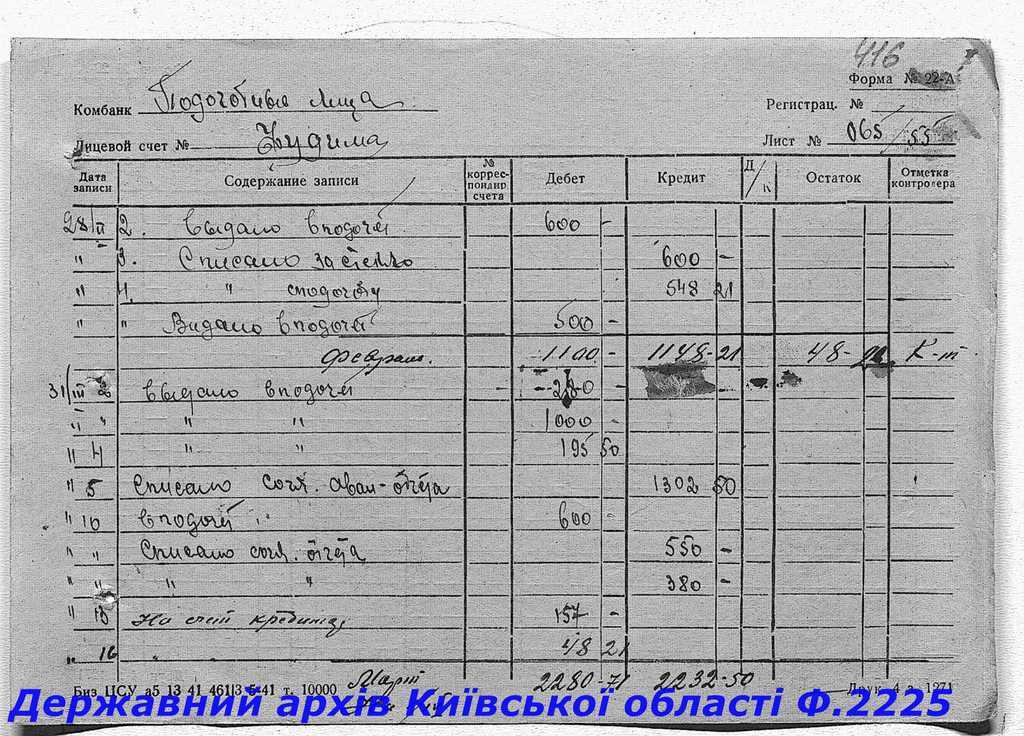 416
Форма № 22-А
Комбанк Подотчётные лица
Регистрац. №
Лицевой счет № Кудима
Лист № 065/55
Дата записи Содержание записи № коррес-пондир счета Дебет Кредит Д/К Остаток Отметка контролера
28/II 2. выдано вподочёт 600 -
" 3. Списано за стекло 600 -
" 4. " сподочёту 548 21
" " Видано вподочёт 500 -
февраль. 1100- 1148-21 48-21 К-т
31/III 2 выдано вподочёт 280 -
" " " " 1000 -
" 4 " " 195 50
" 5 Списано согл. аван-отчёта 1302 50
" 10 вподочёт " 600 -
" " Списано согл. отчёта 550 -
" " " " 380 -
" 13 На счёт кредита, 157 -
" 16 " 48 21
Март 2280-71 2232-50
Биз ЦСУ а5 13 41 46113 5-41 т. 10000
Друк. 4 з. 1271
Державний архів Київської області Ф.2225